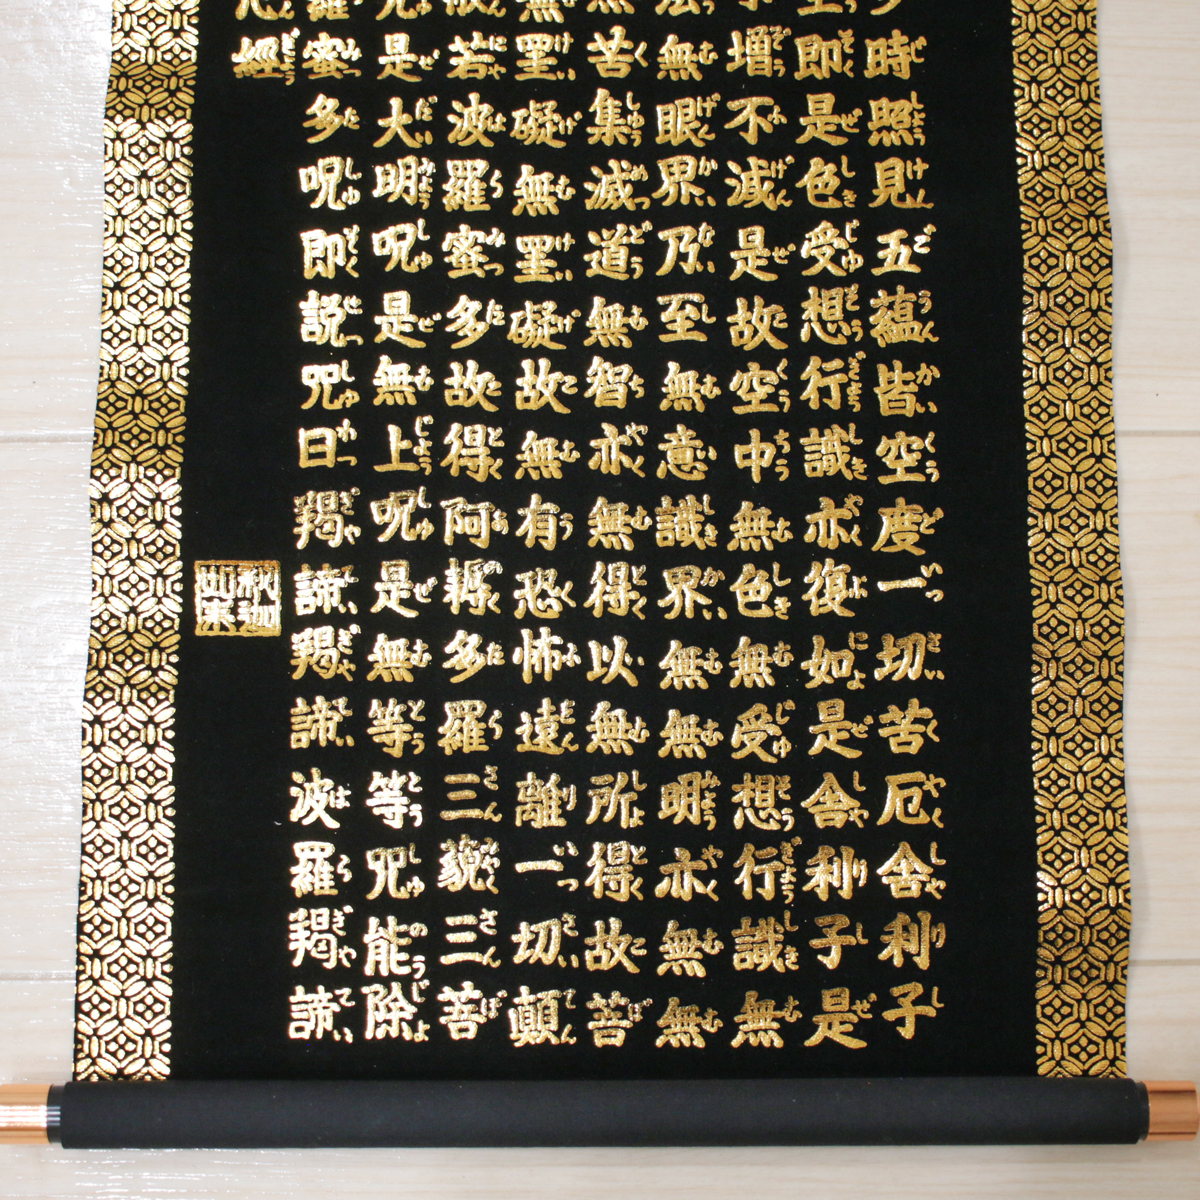 時照見五蘊皆空度一切苦厄舍利子
即是色受想行識亦復如是舍利子是
増不減是故空中無色無受想行識無
無眼界乃至無意識界無無明亦無無
苦集滅道無智亦無得以無所得故菩
無罣礙無罣礙故無有恐怖遠離一切顛
般若波羅蜜多故得阿耨多羅三藐三菩
呪是大明呪是無上呪是無等等咒能除
羅蜜多呪即説咒曰羯諦羯諦波羅羯諦
經
釈迦
如来